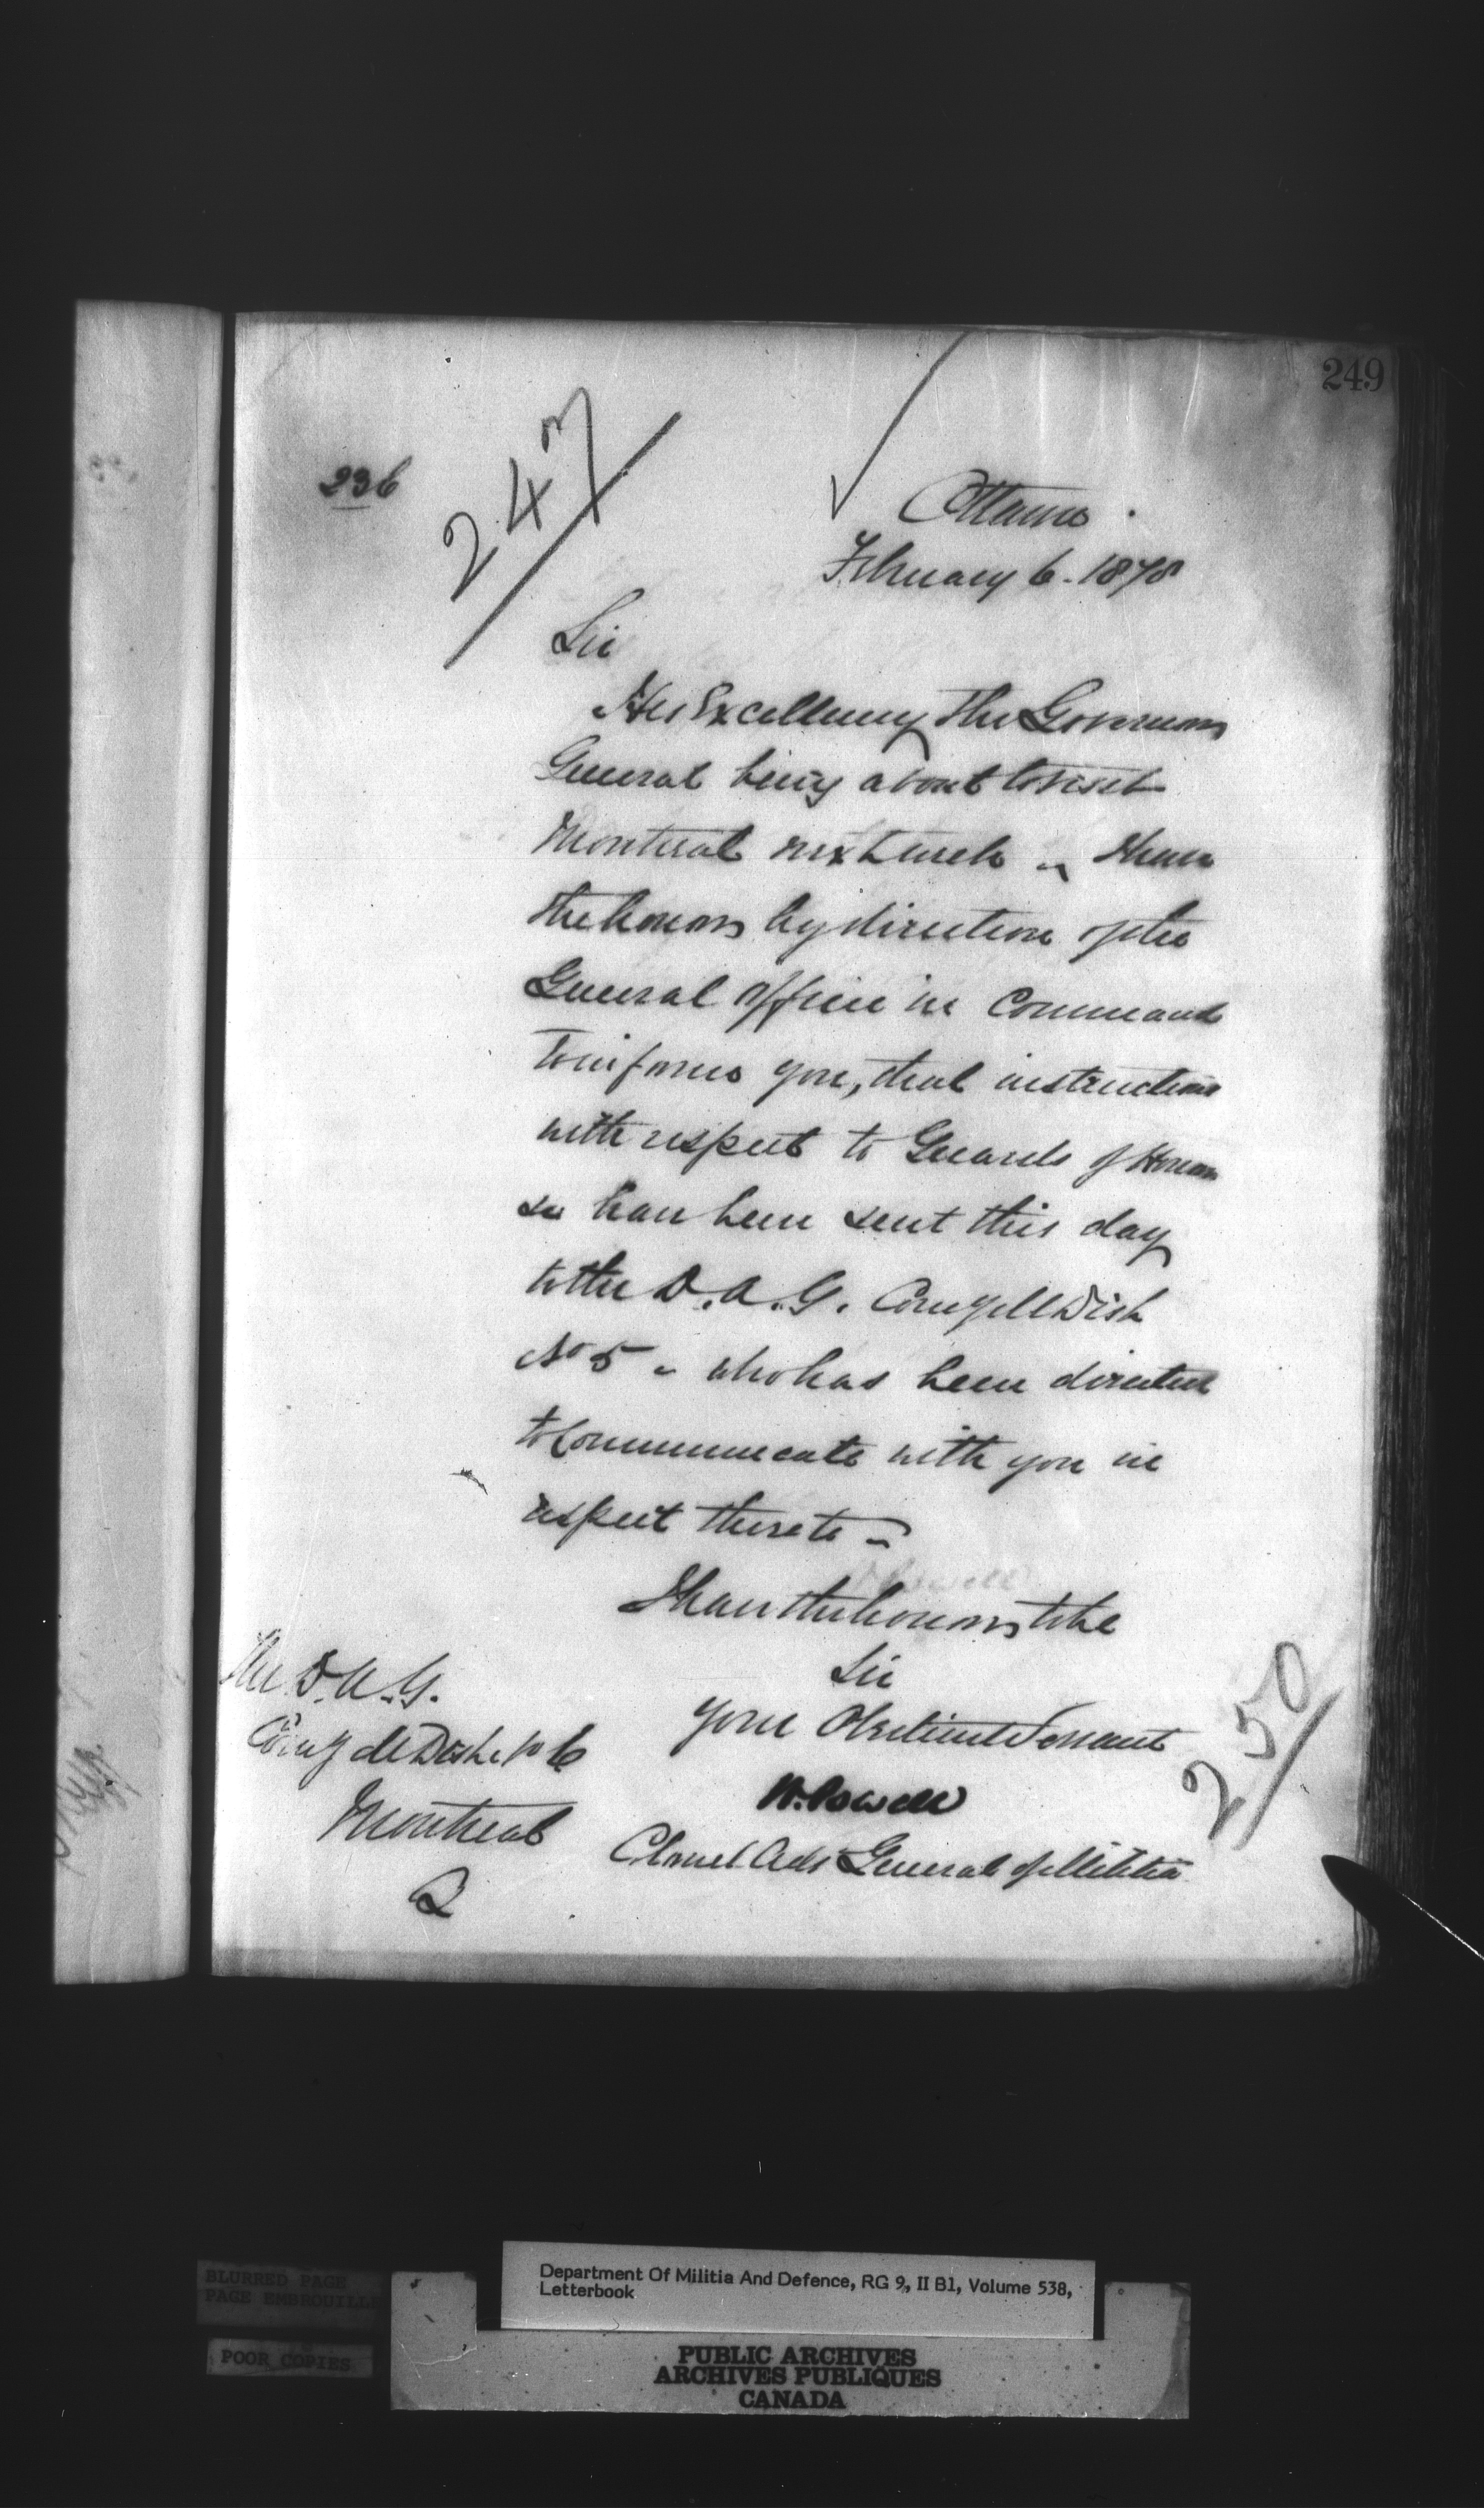 249
236
247
Ottawa.
February 6. 1878
Sir
His Excellency The Governor
General being about to visit
Montreal next week I have
the honor by direction of the
General Officer in Command
to inform you, that instructions
with respect to Guards of Honor
&c have been sent this day
to the D.A.G. Comg Mil Dist
No 5 - who has been directed
to communicate with you in
respect thereto -
I have the honor to be
Sir
Your Obedient Servant
W. Powell
Colonel Adj General of Militia
The D.A.G.
Comg Mil Dist No 6
Montreal
Q
250
BLURRED PAGE
PAGE EMBROUILLE
POOR COPIES
Department Of Militia And Defence, RG 9, II B1, Volume 538,
Letterbook
PUBLIC ARCHIVES
ARCHIVES PUBLIQUES
CANADA